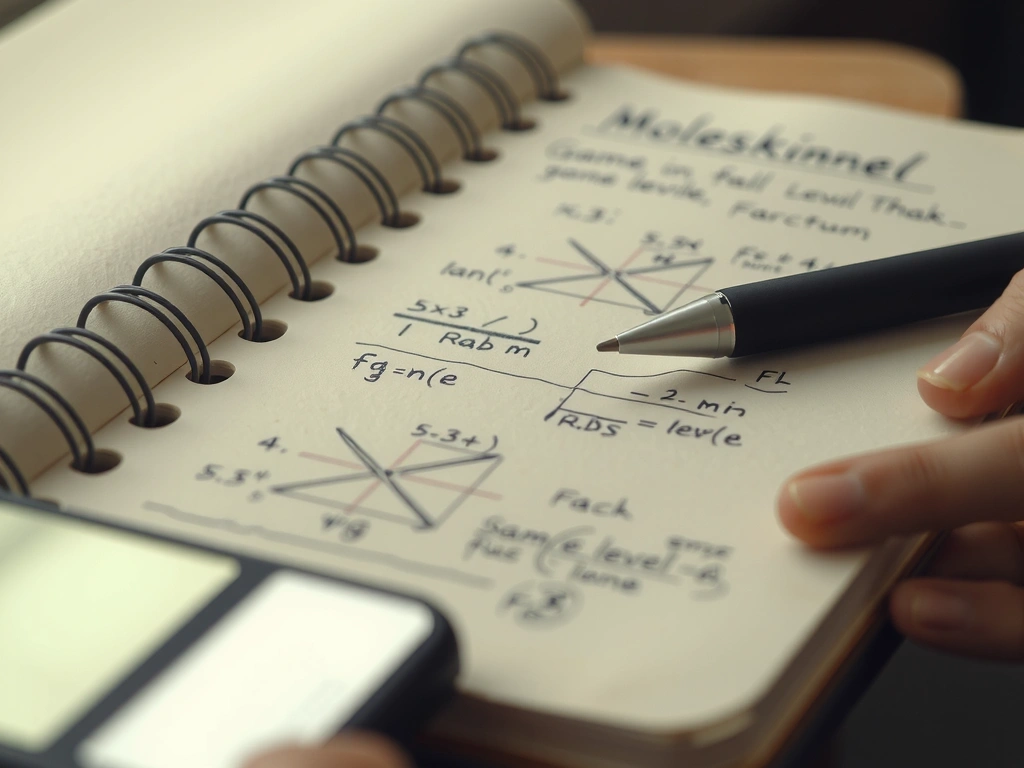 Moleskinnel
Game in fall Lewl Thak
game levile, Farctum
x.3:
4.
5.3+
lan(
5x3 / )
1 Rab m
fg=n(e
FL
- 2. min
R.DS = lev(e
4.
5.3+)
5.3
rg
Fach
Sam(e level
fue lane